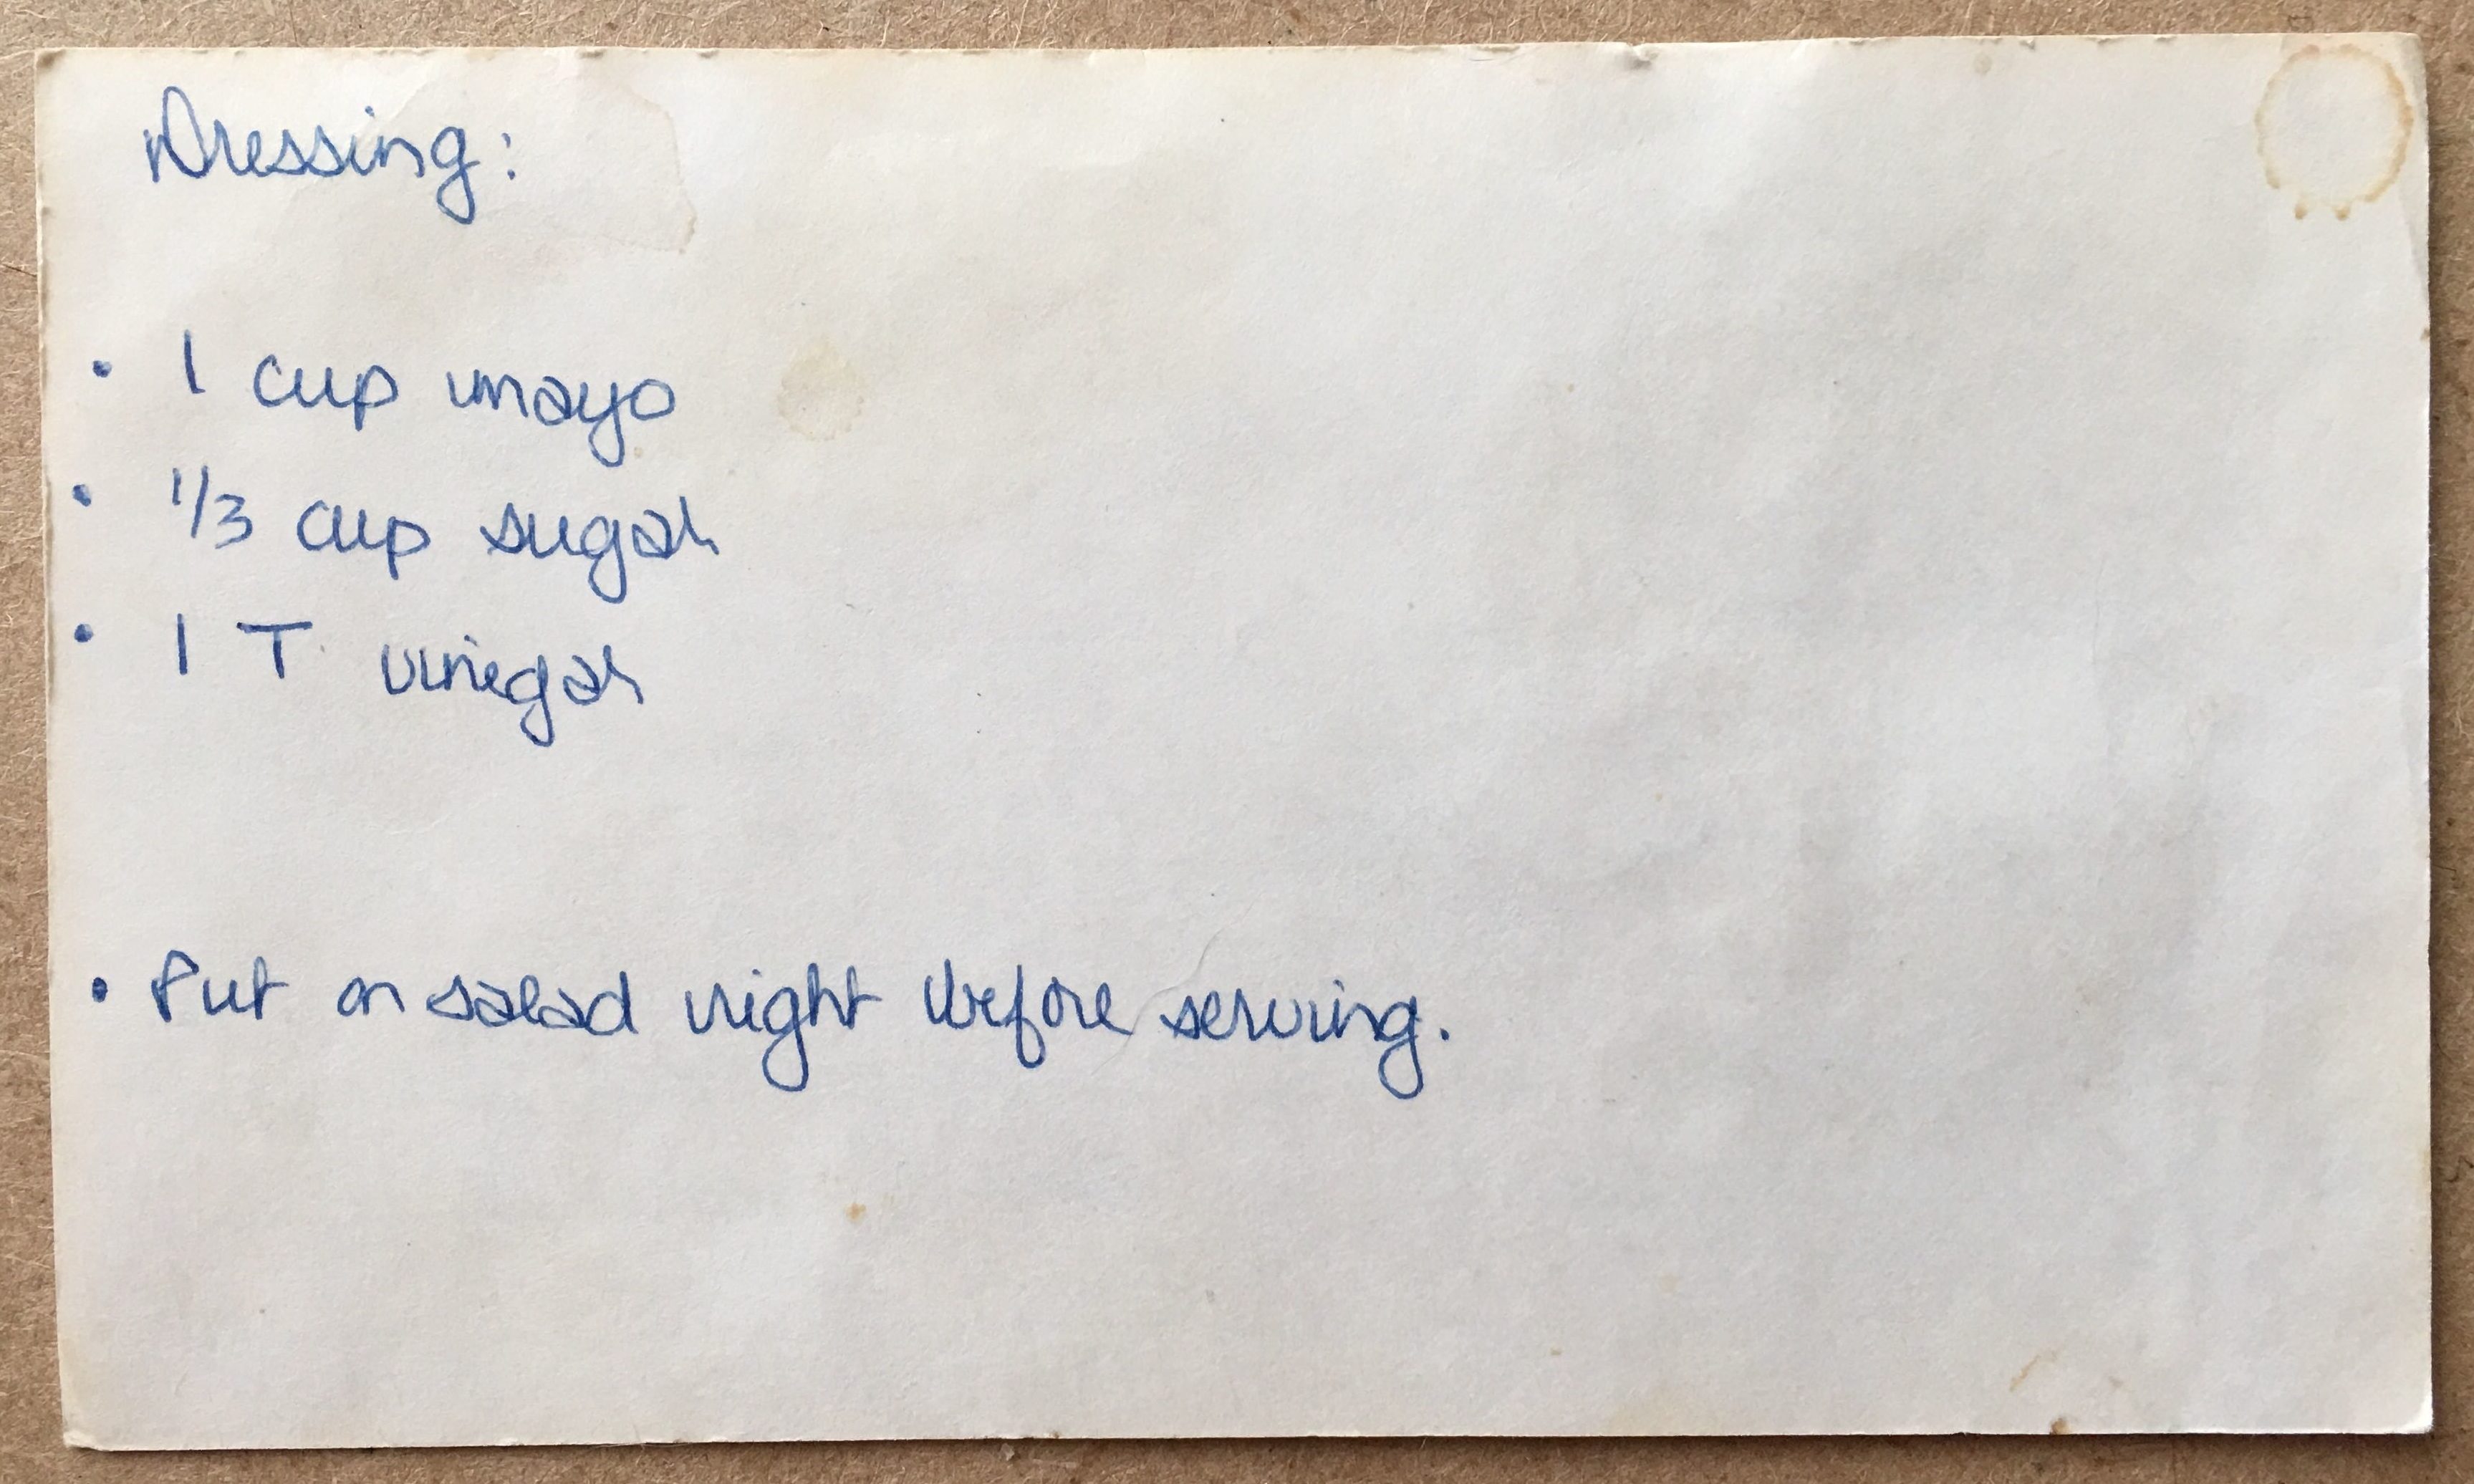 Dressing:
• 1 cup mayo
• 1/3 cup sugar
• 1 T vinegar
• Put on salad right before serving.